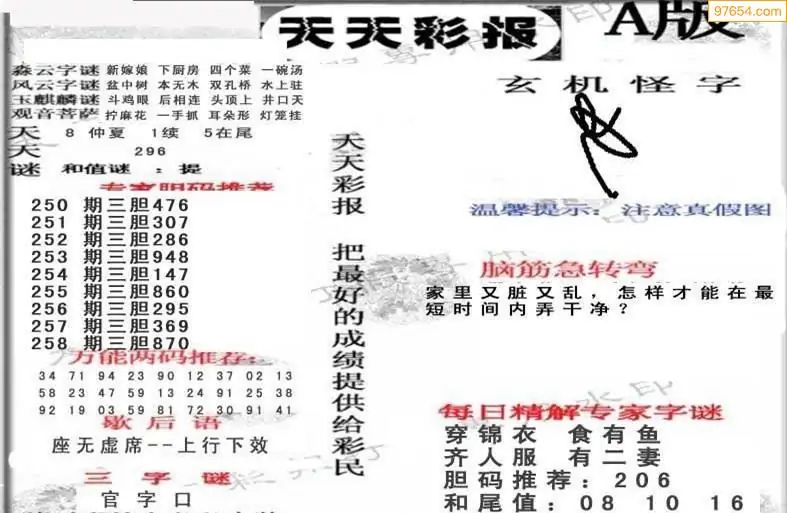 97654.com
天天彩报
A版
淼云字谜 新嫁娘 下厨房 四个菜 一碗汤
风云字谜 盆中树 本无木 双孔桥 水上驻
玉麒麟谜 斗鸡眼 后相连 头顶上 井口天
观音菩萨 拧麻花 一手抓 耳朵形 灯笼挂
天 8 仲夏 1续 5在尾
天 296
谜 和值谜：提
专家胆码推荐
250 期三胆476
251 期三胆307
252 期三胆286
253 期三胆948
254 期三胆147
255 期三胆860
256 期三胆295
257 期三胆369
258 期三胆870
万能两码推荐：
34 71 94 23 90 12 37 02 13
58 23 47 59 13 24 91 25 38
92 19 03 59 81 72 30 91 41
歇后语
座无虚席--上行下效
三字谜
官字口
天天彩报 把最好的成绩提供给彩民
玄机怪字
温馨提示：注意真假图
脑筋急转弯
家里又脏又乱，怎样才能在最
短时间内弄干净？
每日精解专家字谜
穿锦衣 食有鱼
齐人服 有二妻
胆码推荐：206
和尾值：08 10 16